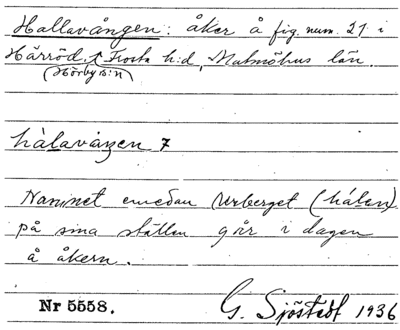 Hallavången: åker å fig. num. 21 i
Härröd, Frosta h:d, Malmöhus län.
(Hörby s:n)
hàlavåŋen 7
Namnet emedan urberget (hálan)
på sina ställen går i dagen
å åkern.
Nr 5558.
G. Sjöstedt 1936